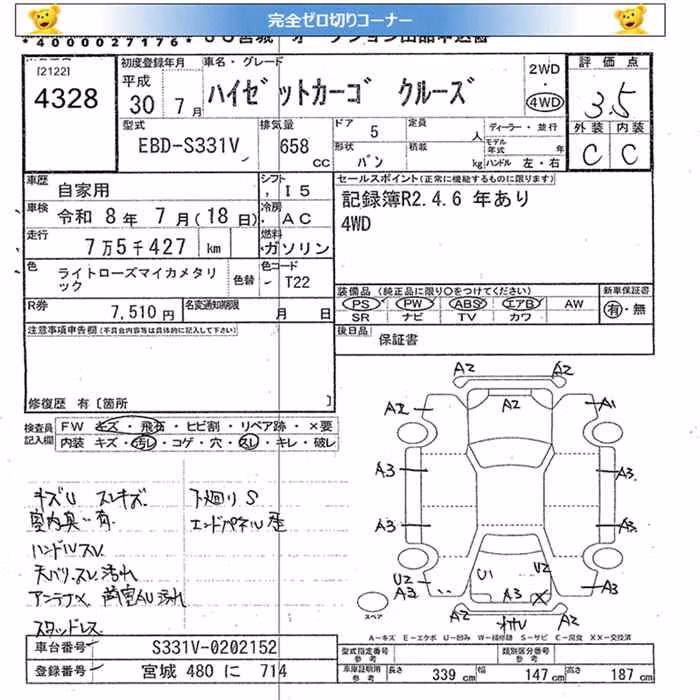 完全ゼロ切りコーナー
*4000027176*
[2122]
4328
初度登録年月
平成
30 年 7 月
車名・グレード
ハイゼットカーゴ クルーズ
2WD
・
4WD
評価点
3.5
外装 内装
C C
型式
EBD-S331V
排気量
658 CC
ドア 5
定員 人
形状 バン
積載 kg
ディーラー・並行
モデル年式 年
ハンドル 左・右
車歴
自家用
シフト
I5
車検
令和 8年 7月(18日)
冷房
AC
走行
7万5千427 km
燃料
ガソリン
色
ライトローズマイカメタリック
色替
色コード
T22
R券
7,510円
名変通知期限
月 日
セールスポイント(正常に機能するものに限ります)
記録簿R2.4.6 年あり
4WD
装備品(純正品に限り○をつけてください)
PS PW ABS エアB AW
SR ナビ TV カワ
新車保証書
有・無
後日品
保証書
注意事項申告欄(不具合内容等は具体的に記入して下さい)
修復歴 有〔箇所 〕
検査員記入欄
FW キズ・飛石・ヒビ割・リペア跡・×要
内装 キズ・汚レ・コゲ・穴・スレ・キレ・破レ
キズU スレキズ 下廻りS
室内臭い有 エンドパネル歪
ハンドルスレ
天バリ、スレ汚れ
アンテナ× 荷室AU汚れ
スタッドレス
A2 A2
A2 A2 A1
A3 A3
A3 A3
U2 A3 U1 U2 A3 × A3
A2 ワレ A2
スペア
A－キズ E－エクボ U－凹み W－補修跡 S－サビ C－腐食 XX－交換済
車台番号
S331V-0202152
登録番号
宮城 480 に 714
型式指定番号
参考
類別区分番号
参考
車庫証明用
参考
長さ 339 cm 幅 147 cm 高さ 187 cm